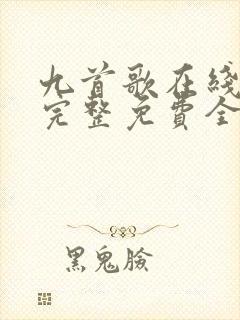 九首歌在綫
完整免費全
黑鬼臉